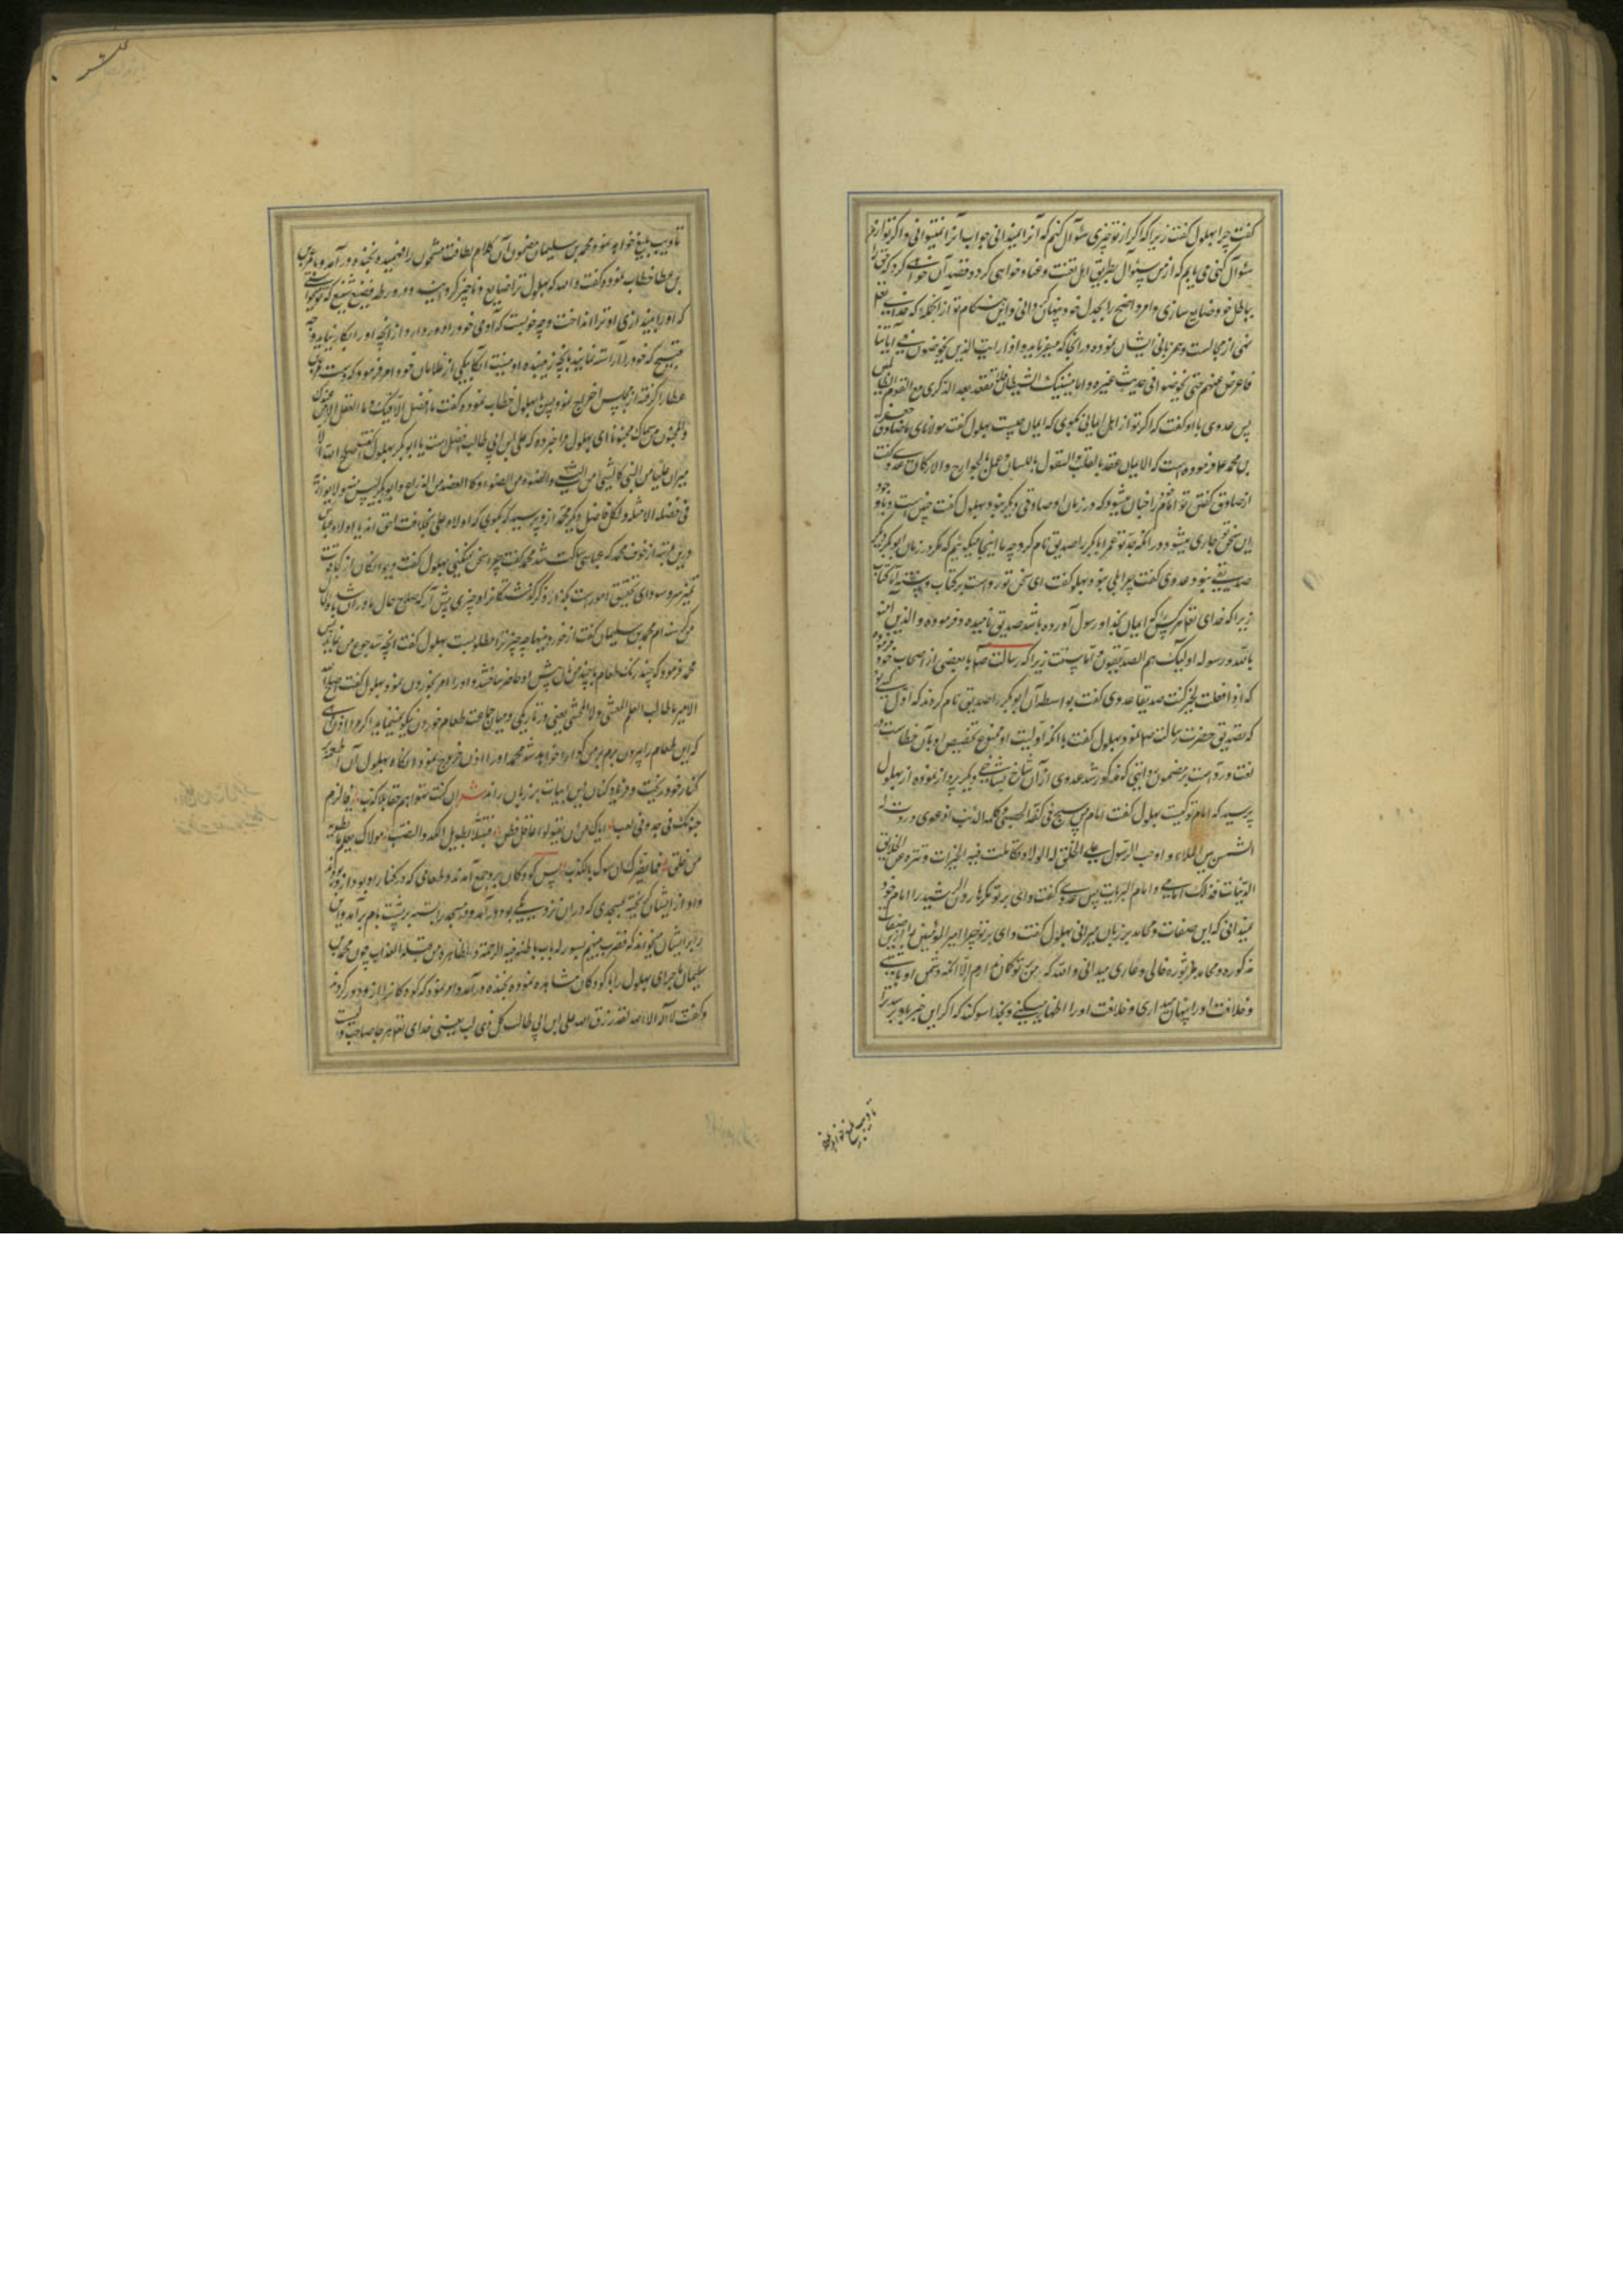 گفت چرا بهلول گفت زیرا که اگر از تو چیزی سئوال کنم که آنرا نمیدانی جواب آنرا نمیتوانی و اگر تو از من
سئوال کنی می یابم که از من سئوال بطریق اهل تعنت و عناد خواهی کرد و قصد آن خواهی کرد که حق را
بباطل خود ضایع سازی و امر واضح را بجدل خود پنهان گردانی و این هنگام تو از آنجمله که خدای تعالی
نهی از مجالست و همزبانی ایشان نموده در آنجا که میفرماید و اذا رایت الذین یخوضون فی آیاتنا
فاعرض عنهم حتی یخوضوا فی حدیث غیره و اما ینسینک الشیطان فلا تقعد بعد الذکری مع القوم الظالمین
پس عدوی با او گفت که اگر تو از اهل ایمانی بگوی که ایمان چیست بهلول گفت مولانای ما صادق جعفر
بن محمد ع فرموده است که الایمان عقد بالقلب و القول باللسان و عمل بالجوارح و الارکان عدوی گفت
از صادق گفتن تو امام را چنان میشود که در زمان او صادقی دیگر نبود بهلول گفت چنین است و با وجود
این سخن بر تو جاری میشود در آنکه جد تو عمر ابابکر را صدیق نام کرد چه ما اینجا میگوئیم که مگر در زمان ابوبکر دیگر
صدیقی نبود عدوی گفت چرا بلی نبود بهلول گفت این سخن تو رد است بر کتاب و سنت اما کتاب
زیرا که خدای تعالی هر کس که ایمان بخدا و رسول آورده باشد صدیق نامیده و فرموده و الذین آمنو
بالله و رسوله اولئک هم الصدیقون و اما سنت زیرا که رسالت ص با بعضی از اصحاب خود فرمود
که اذا فعلت الخیر کنت صدیقا عدوی گفت بواسطه آن ابو بکر را صدیق نام کردند که اول کسی بود
که تصدیق حضرت رسالت ص نمود بهلول گفت با آنکه اولیت او ممنوع تخصیص او بآن خطاست در
لغت و رد است بر مضمون آیتی که مذکور شد عدوی از آن شاخ بشاخی دیگر پرواز نموده از بهلول
پرسید که امام تو کیست بهلول گفت امام من سبح فی کفه الحصی و کلمه الذئب اذ عوی و ردت له
الشمس بین الملاء و اوجب الرسول علی الخلق له الولاء و تکاملت فیه الخیرات و تنزه عن الخلایق
الدنیات فذلک امامی و امام البریات پس عدوی گفت وای بر تو مگر هارون الرشید را امام خود
نمیدانی که این صفات و محامد بر زبان میرانی بهلول گفت وای بر تو چرا امیر المؤمنین را از این صفات
مذکوره و محامد مزبوره خالی و عاری میدانی و الله که من بتو گمان ندارم الا آنکه دشمن او باشی
و خلافت او را پنهان میداری و خلافت او را اظهار میکنی و بخدا سوگند که اگر این خبر باو برسد ترا
تادیب بلیغ خواهد نمود
تادیب بلیغ خواهد نمود محمد بن سلیمان مضمون آن کلام لطافت مشحون را فهمیده بخنده در آمد و با عمر بن
بن عطا خطاب نمود و گفت و الله که بهلول ترا ضایع و ناچیز گردانید و در ورطه فضیح شنیع که تو میخواستی
که او را بیندازی او ترا انداخت و چه خوبست که آدمی خود را دور دارد از آنچه او را بکار نیاید و چه
قبیح که خود را آراسته نمایند بآنچه زیبنده او نیست آنگاه یکی از غلامان خود امر فرمود که دست عمر بن
عطا را گرفته از مجلس اخراج نمود پس با بهلول خطاب نموده گفت ما الفضل الا فیک و ما العقل الا من عندک
و المجنون من سماک مجنونا ای بهلول مرا خبر ده که علی ابن ابی طالب افضل است یا ابو بکر بهلول گفت اصلح الله
میرا ان علیا من النبی کالشئ من الشئ و الصنو من الصنو و کالعضد من الذراع و ابو بکر لیس منه و لا یوازنه
فی فضله الا مثله و لکل فاضل دیگر محمد از و پرسید که بگوی که اولاد علی بخلافت احق اند یا اولاد عباس
درین مرتبه از خوف محمد که عباسی بود ساکت شد محمد گفت چرا سخن نمیکنی بهلول گفت دیوانگان از کجا قوت
تمیز و سودای تحقیق امور است بگذار ذکر گذشتگانرا و چیزی پیش آر که صلاح حال ما در آن باشد
من گرسنه ام محمد بن سلیمان گفت از خوردنیها چه چیز ترا مطلوبست بهلول گفت آنچه سد جوع من نماید پس
محمد فرمود که چند رنگ طعام با چند من نان پیش او حاضر ساختند و او را امر بخوردن نمود بهلول گفت اصلح الله
الامیر ما طاب الطعام المعشی و لا المحشی یعنی در تاریکی و میان جماعت طعام خوردن نیکو نمینماید اگر مرا اذن دهی
که این طعام را بیرون برم بر من گوارا خواهد شد محمد او را اذن خروج نمود آنگاه بهلول آن اطعمه
کنار خود ریخت و فریاد کنان این ابیات بر زبان راند شعر ان کنت تهواهم حقا بلا کذب فالزم
جنونک فی جد و فی لعب ایاک من ان یقولوا عاقل فطن فتبتلی بطویل الکد و النصب مولاک یعلم ما تطویه
من خلق فما یضرک ان سموک بالکذب پس کودکان برو جمع آمدند و طعامی که در کنار او بود از و ربودند
و او از ایشان گریخته بمسجدی که در آن نزدیکی بود در آمد و در مسجد را بسته بر پشت بام برآمد و این
برابر ایشان میخواند که فضرب بینهم بسور له باب باطنه فیه الرحمة و ظاهره من قبله العذاب چون محمد بن
سلیمان ماجرای بهلول را با کودکان مشاهده نموده بخنده در آمد و امر نمود که کودکانرا از و دور کردند
و گفت لا اله الا الله لقد رزق الله علی ابن ابی طالب لب کل ذی لب یعنی خدای تعالی هر جا صاحب لبی است